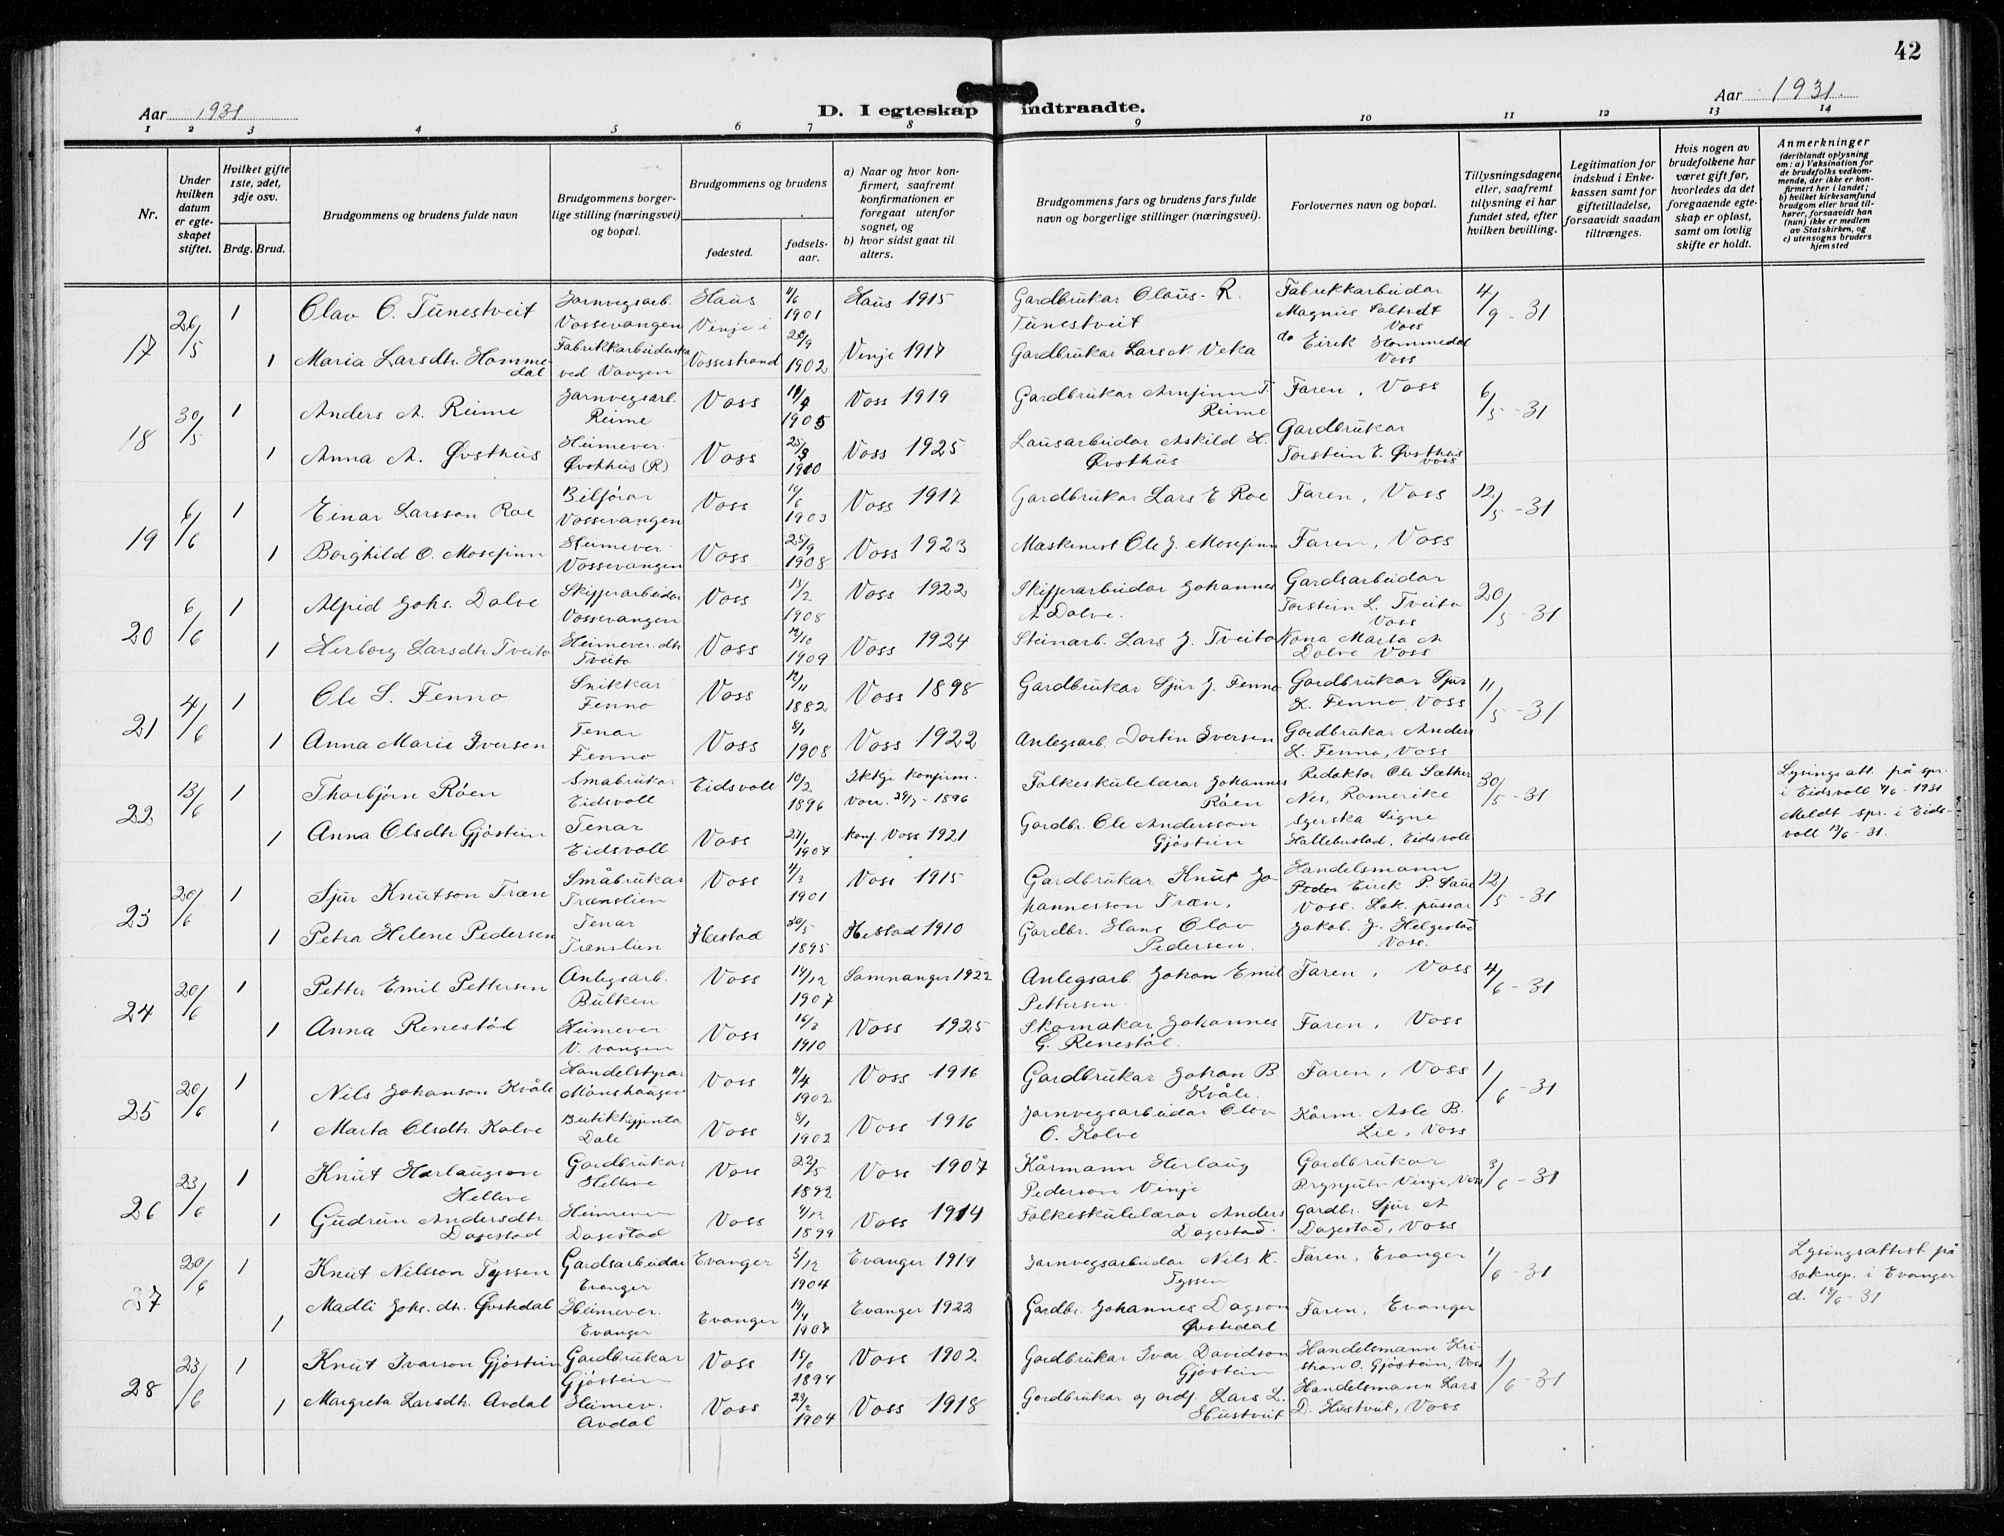 42
Aar 1931
D. I egteskap indtraadte.
Aar 1931.
1 2 3 4 5 6 7 8 9 10 11 12 13 14
Nr.
Under hvilken datum er egteskapet stiftet.
Hvilket gifte 1ste, 2det, 3dje osv.
Brdg. Brud.
Brudgommens og brudens fulde navn
Brudgommens borgerlige stilling (næringsvei) og bopæl.
Brudgommens og brudens
fødested.
fødselsaar.
a) Naar og hvor konfirmert, saafremt konfirmationen er foregaat utenfor sognet, og
b) hvor sidst gaat til alters.
Brudgommens fars og brudens fars fulde navn og borgerlige stillinger (næringsvei).
Forlovernes navn og bopæl.
Tillysningsdagene eller, saafremt tillysning ei har fundet sted, efter hvilken bevilling.
Legitimation for indskud i Enkekassen samt for giftetilladelse, forsaavidt saadan tiltrænges.
Hvis nogen av brudefolkene har været gift før, hvorledes da det foregaaende egteskap er opløst, samt om lovlig skifte er holdt.
Anmerkninger
(deriblandt oplysning om: a) Vaksination for de brudefolks vedkommende, der ikke er konfirmert her i landet; b) hvilket kirkesamfund brudgom eller brud tilhører, forsaavidt han (hun) ikke er medlem av Statskirken, og c) utensogns bruders hjemsted
17 26/5 1 Olav O. Tunestveit Jarnvegsarb. Vossevangen Haus 4/6 1901 Haus 1915 Gardbrukar Olaus R. Tunestveit Fabrikkarbeidar Magnus Voss 4/9 - 31
1 Maria Larsdtr. Hommedal Fabrikkarbeiderska ved Vangen Vinje i Vossestrand 28/9 1902 Vinje 1917 Gardbrukar Lars N Veka do Eirik Hommedal Voss
18 30/5 1 Anders A. Reime Jarnvegsarb. Reime Voss 1905 Voss 1919 Gardbrukar Arnfinn T. Reime Faren, Voss 6/5 - 31
1 Anna A. Øvsthus Heimever. Øvsthus (R) Voss 1910 Voss 1925 Lausarbeidar Askild H. Øvsthus Gardbrukar Torstein E. Øvsthus Voss
19 6/6 1 Einar Larsson Roe Bilførar Vossevangen Voss 10/6 1903 Voss 1917 Gardbrukar Lars E Roe Faren, Voss 12/5 - 31
1 Borghild O. Mosefinn Heimever. Vossevangen Voss 25/9 1908 Voss 1923 Maskinist Ole J. Mosefinn Faren, Voss
20 6/6 1 Alfrid Johs. Dolve Skiferarbeidar Vossevangen Voss 15/2 1908 Voss 1922 Skiferarbeidar Johannes A Dolve. Gardsarbeidar Torstein L. Tveito Voss 20/5 - 31
1 Herborg Larsdtr Tveito Heimever. dtr Tveito Voss 12/10 1909 Voss 1924 Steinarb. Lars J. Tveito Kona Marta A Dolve Voss
21 4/6 1 Ole S. Fenno Snikkar Fenno Voss 12/11 1882 Voss 1898 Gardbrukar Sjur J. Fenno Gardbrukar Sjur K. Fenno, Voss 11/5 - 31
1 Anna Marie Iversen Tenar Fenno Voss 8/1 1908 Voss 1922 Anlegsarb. Dortin Iversen Gardbrukar Anders L. Fenno, Voss
22 13/6 1 Thorbjørn Røen Småbrukar Eidsvoll Eidsvoll 10/2 1896 Ikkje konfirm. - 1896 Folkeskulelærar Johannes Røen Redaktør Ole Sæther Nes, Romerike 30/5 - 31 Lysingsatt. på spr. i Eidsvoll 4/6 - 1931
1 Anna Olsdtr. Gjøstein Tenar Eidsvoll Voss 27/1 1907 Konf. Voss 1921 Gardbr. Ole Andersson Gjøstein Signe Eidsvoll Meldt spr. i Eidsvoll 13/6 - 31.
23 20/6 1 Sjur Knutson Træn Småbrukar Trænslien Voss 4/3 1901 Voss 1915 Gardbrukar Knut Johannesson Træn. Handelsmann Peder Eirik P. Saue Voss. 12/5 - 31
1 Petra Helene Pedersen Tenar Trænslien Hestad 30/5 1895 Hestad 1910 Gardbr. Hans Olav Pedersen. Lok. pussar Jakob J. Helgestad Voss.
24 20/6 1 Petter Emil Pettersen Anlegsarb. Bulken Voss 14/12 1907 Samnanger 1922 Anlegsarb. Johan Emil Pettersen. Faren, Voss 4/6 - 31
1 Anna Renestød Heimever V. vangen Voss 1910 Voss 1925 Skomakar Johannes G. Renestøl. Faren, Voss
25 20/6 1 Nils Johanson Kvåle Handelstyrar Mønshaugen Voss 4/4 1902 Voss 1916 Gardbrukar Johan B. Kvåle. Faren, Voss 1/6 - 31
1 Marta Olsdtr. Kolve Butikkgjenta Dale Voss 8/1 1902 Voss 1916 Jarnvegsarbeidar Olav O. Kolve Kårm. Asle B. Lie, Voss
26 23/6 1 Knut Herlaugson Helleve Gardbrukar Helleve Voss 22/5 1892 Voss 1907 Kårmann Herlaug Pederson Vinje Gardbrukar Brynjulv Vinje, Voss 3/6 - 31
1 Gudrun Andersdtr. Dagestad Heimever Dagestad Voss 4/12 1899 Voss 1914 Folkeskulelærar Anders Dagestad. Gardbr. Sjur A Dagestad, Voss
27 20/6 1 Knut Nilsson Tyssen Gardsarbeidar Evanger Evanger 5/12 1904 Evanger 1919 Jarnvegsarbeidar Nils K. Tyssen Faren, Evanger 1/6 - 31 Lysingsattest på soknep. i Evanger d. 18/6 - 31
1 Madli Johs. dtr. Øvstedal Heimever. Evanger Evanger 14/4 1907 Evanger 1922 Gardbr. Johannes Dagson Øvstedal Faren, Evanger
28 23/6 1 Knut Ivarson Gjøstein Gardbrukar Gjøstein Voss 15/6 1894 Voss 1902 Gardbrukar Ivar Davidson Gjøstein Handelsmann Kristian O. Gjøstein, Voss 1/6 - 31
1 Margreta Larsdtr. Avdal Heimev. Avdal Voss 23/2 1904 Voss 1918 Gardbrukar og ordf. Lars L. Hustveit Handelsmann Lars D. Hustveit, Voss